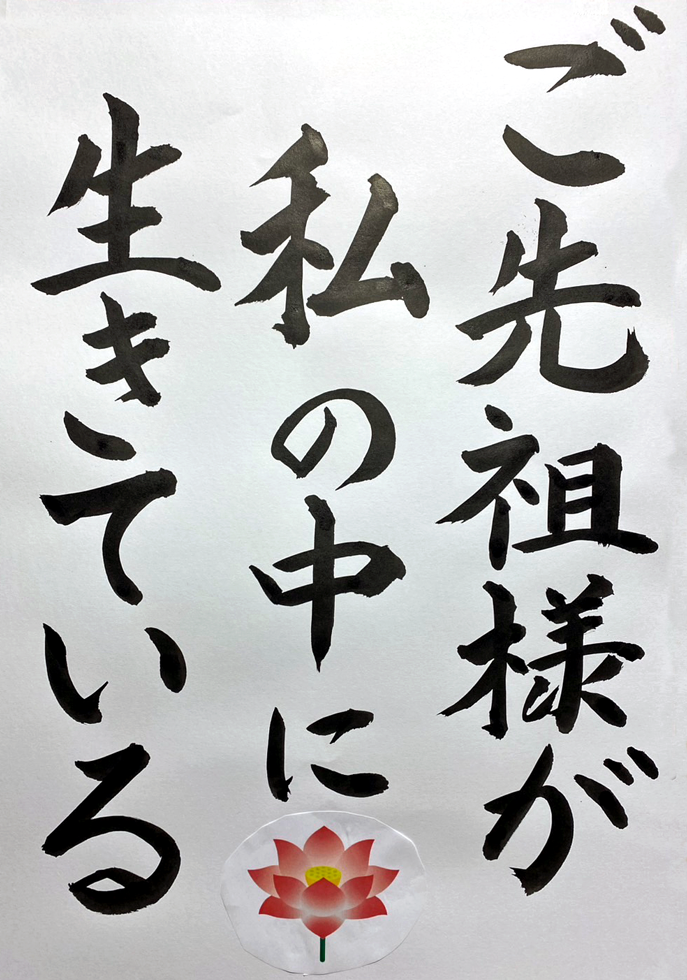 ご先祖様が
私の中に
生きている